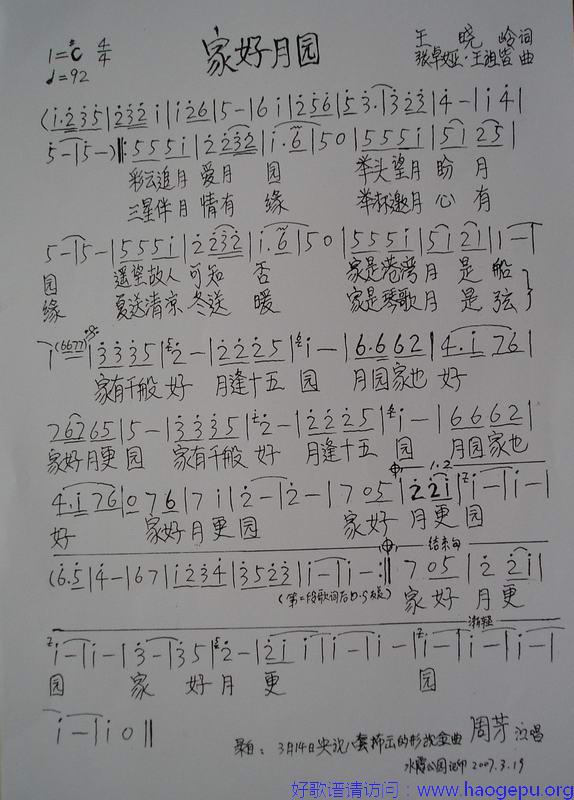 家好月园
1=#C 4/4
♩=92
王晓岭词
张卓娅·王祖皆曲
(i.235|232i|i26|5-|6i|256|53.|323|4-|i4|
5-|5-)‖:555i|2232|i.6|50|555i|5i25|
彩云追月 爱月 园 举头望月 盼月
三星伴月 情有 缘 举杯邀月 心有
5-|5-|555i|2232|i.6|50|555i|5i2i|1-|
园 遥望故人 可知 否 家是港湾 月是船
缘 夏送清凉 冬送 暖 家是琴歌 月是弦
i(6677)|3335|2-|2225|i-|6.662|4.i76|
家有千般 好 月逢十五 园 月园家也 好
76765|5-|3335|2-|2225|i-|6662|
家好月更 园 家有千般 好 月逢十五 园 月园家也
1.2
4.i76|076|7i|2-|2-|705|22i|i-|i-|
好 家好 月更园 家好 月更园
结束句
(6.5|4-|67|i234|3523|i-|i-:‖705|22i|
(第二段歌词后D.S反复)
家好 月更
渐慢
i-|i-|3-|35|2-|2i i|i-|i-|i-|i-|i-|i-|
园 家 好月 更 园
i-|i0‖
录自:3月14日央视八套播出的影视金曲 周芳 演唱
2007.3.19
好歌谱请访问：www.haogepu.org